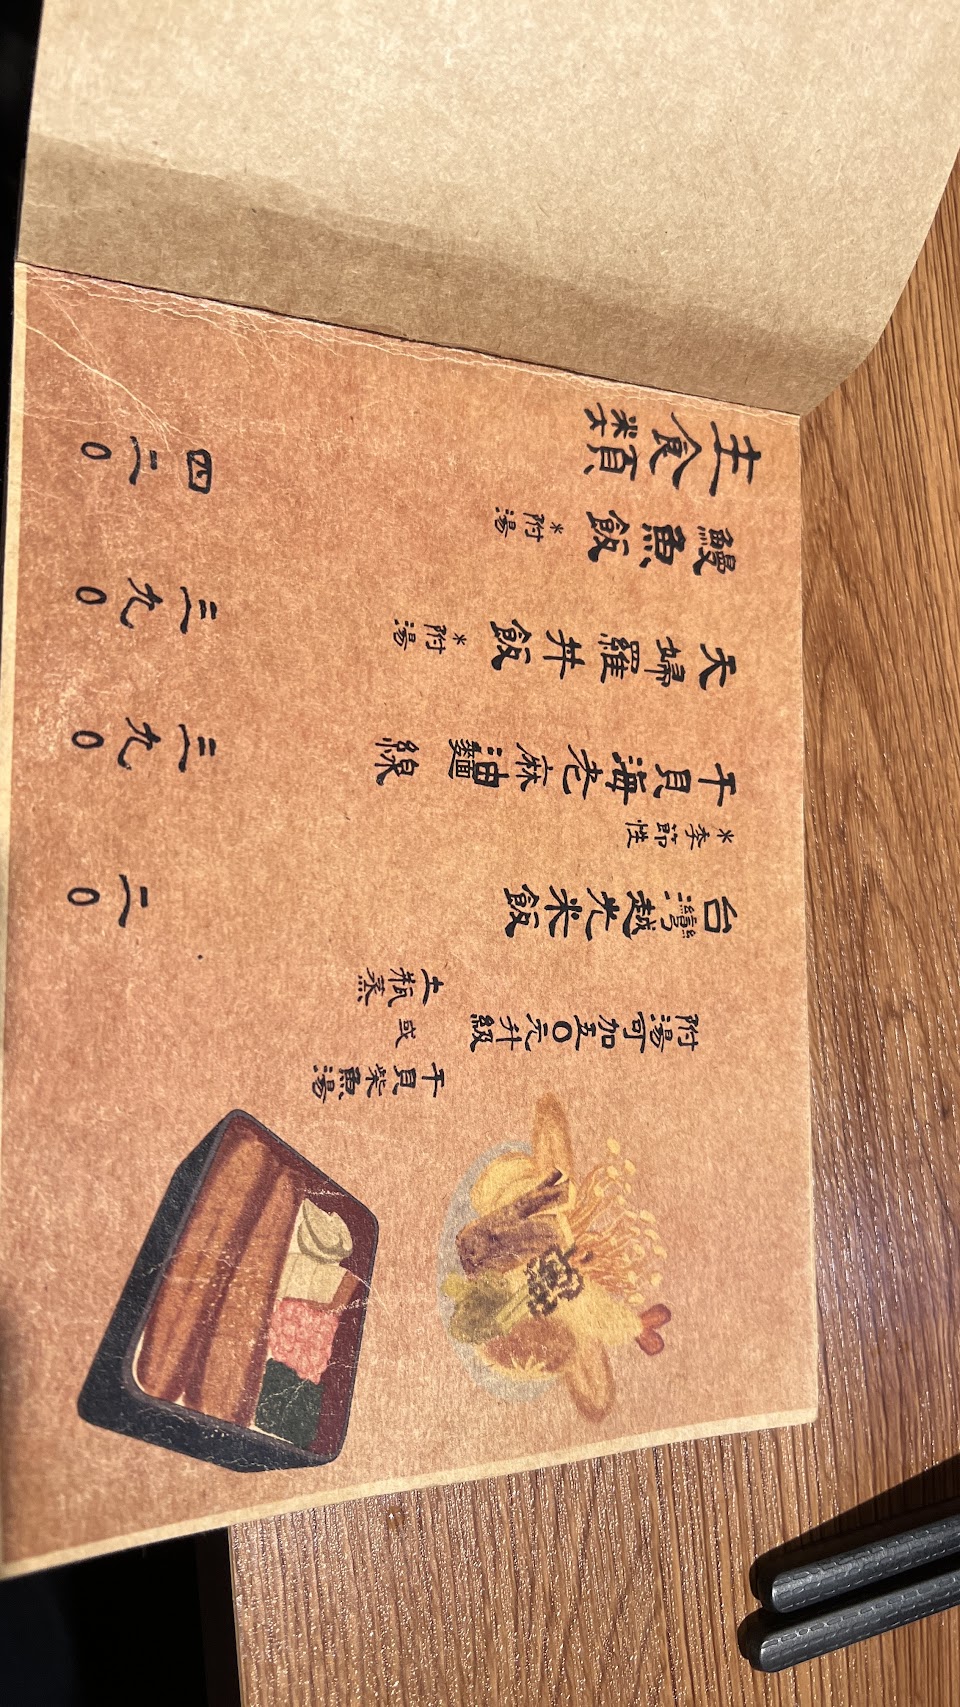 主食類
鰻魚飯 *附湯 四二0
天婦羅丼飯 *附湯 三九0
干貝海老麻油麵線 三九0
*季節性
台灣越光米飯 二0
附湯可加五0元升級
土瓶蒸
或
干貝柴魚湯